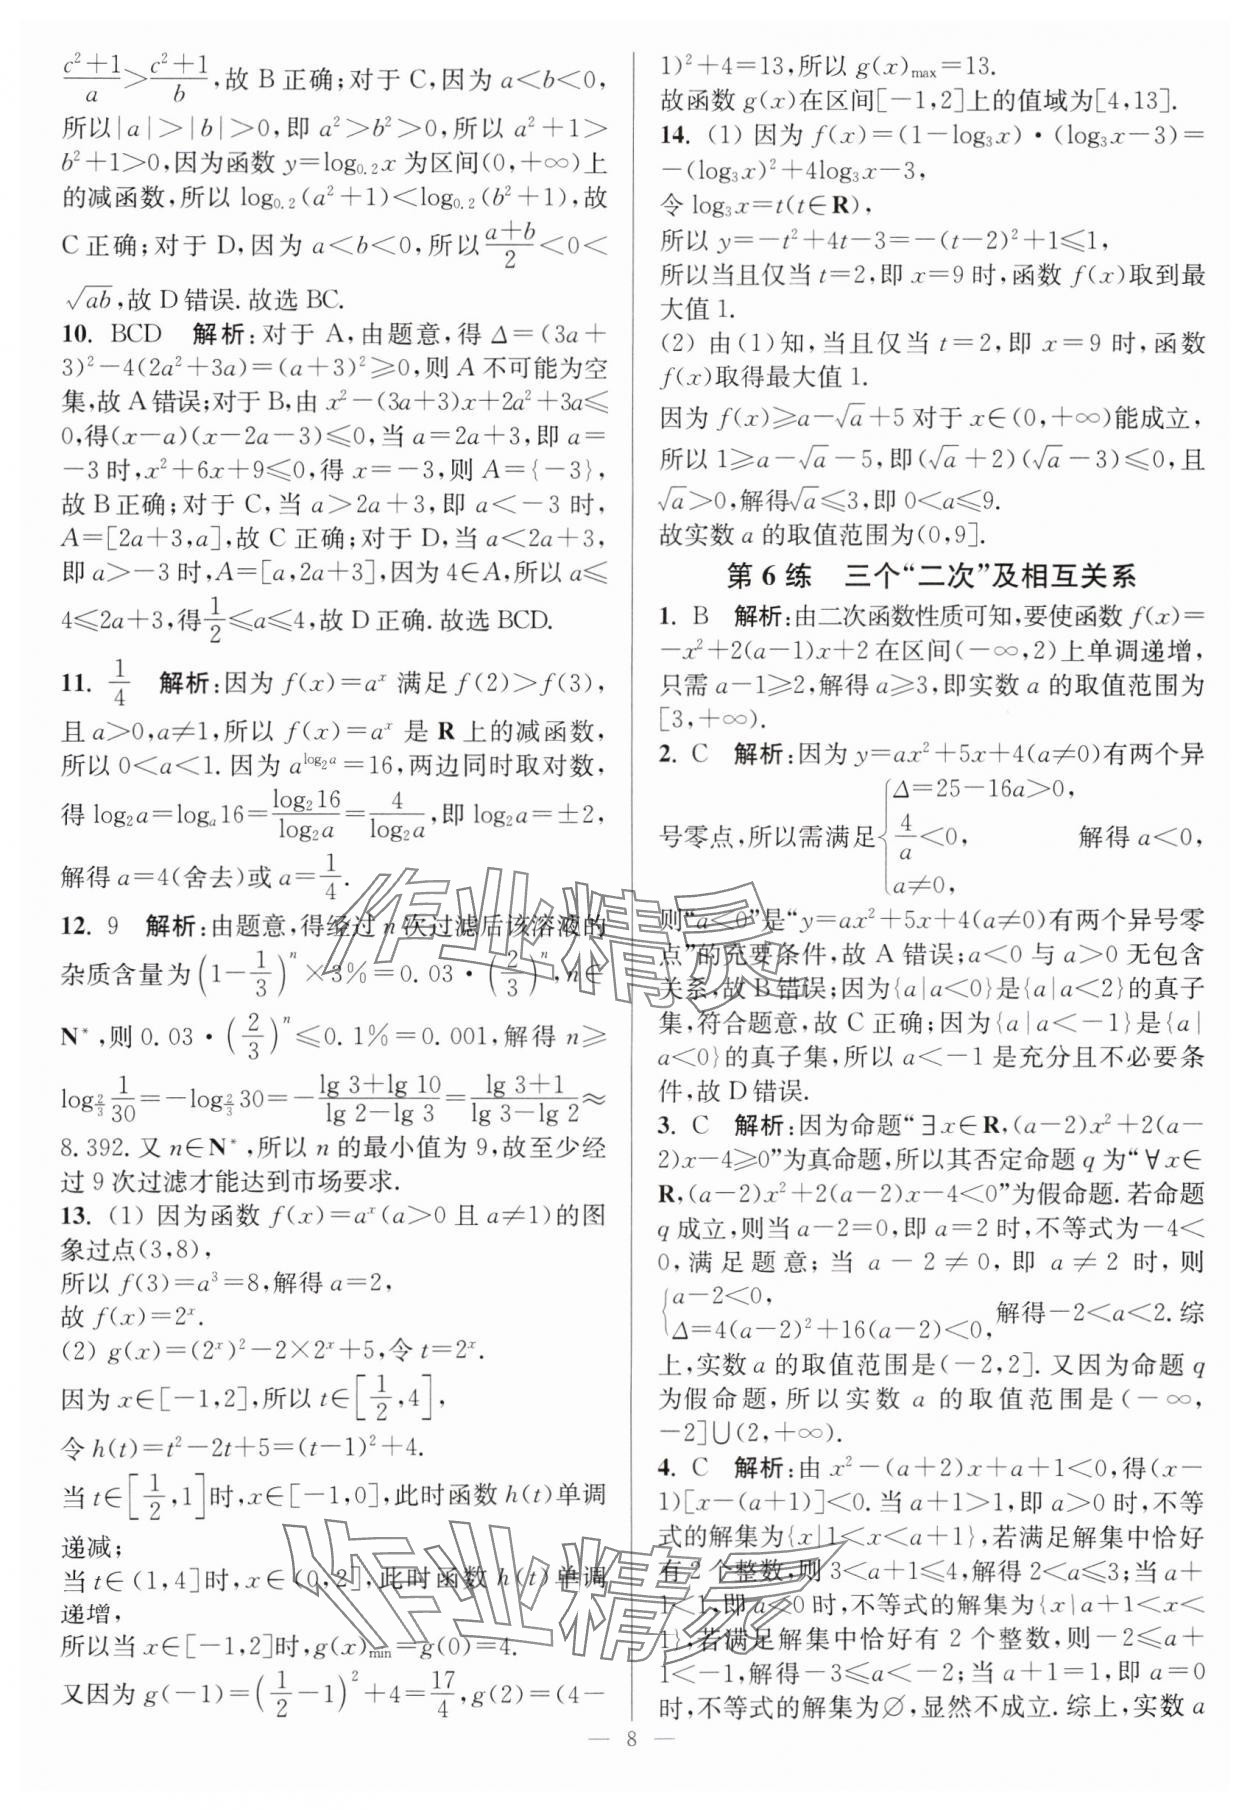 $\frac{c^2+1}{a}>\frac{c^2+1}{b}$,故 B 正确;对于 C,因为 $a<b<0$,
所以$|a|>|b|>0$,即 $a^2>b^2>0$,所以 $a^2+1>$
$b^2+1>0$,因为函数 $y=\log_{0.2}x$ 为区间$(0,+\infty)$上
的减函数,所以 $\log_{0.2}(a^2+1)<\log_{0.2}(b^2+1)$,故
C 正确;对于 D,因为 $a<b<0$,所以$\frac{a+b}{2}<0<$
$\sqrt{ab}$,故 D 错误.故选 BC.
10. BCD 解析:对于 A,由题意,得 $\Delta=(3a+$
$3)^2-4(2a^2+3a)=(a+3)^2\geqslant0$,则 A 不可能为空
集,故 A 错误;对于 B,由 $x^2-(3a+3)x+2a^2+3a\leqslant$
$0$,得$(x-a)(x-2a-3)\leqslant0$,当 $a=2a+3$,即 $a=$
$-3$ 时,$x^2+6x+9\leqslant0$,得 $x=-3$,则 $A=\{-3\}$,
故 B 正确;对于 C,当 $a>2a+3$,即 $a<-3$ 时,
$A=[2a+3,a]$,故 C 正确;对于 D,当 $a<2a+3$,
即 $a>-3$ 时,$A=[a,2a+3]$,因为 $4\in A$,所以 $a\leqslant$
$4\leqslant2a+3$,得$\frac{1}{2}\leqslant a\leqslant4$,故 D 正确.故选 BCD.
11. $\frac{1}{4}$ 解析:因为 $f(x)=a^x$ 满足 $f(2)>f(3)$,
且 $a>0,a\neq1$,所以 $f(x)=a^x$ 是 R 上的减函数,
所以 $0<a<1$.因为 $a^{\log_2a}=16$,两边同时取对数,
得 $\log_2a=\log_a16=\frac{\log_216}{\log_2a}=\frac{4}{\log_2a}$,即 $\log_2a=\pm2$,
解得 $a=4$(舍去)或 $a=\frac{1}{4}$.
12. 9 解析:由题意,得经过 $n$ 次过滤后该溶液的
杂质含量为$\left(1-\frac{1}{3}\right)^n\times3\%=0.03\cdot\left(\frac{2}{3}\right)^n,n\in$
$\mathbf{N}^*$,则 $0.03\cdot\left(\frac{2}{3}\right)^n\leqslant0.1\%=0.001$,解得 $n\geqslant$
$\log_{\frac{2}{3}}\frac{1}{30}=-\log_{\frac{2}{3}}30=-\frac{\lg3+\lg10}{\lg2-\lg3}=\frac{\lg3+1}{\lg3-\lg2}\approx$
8.392.又 $n\in\mathbf{N}^*$,所以 $n$ 的最小值为 9,故至少经
过 9 次过滤才能达到市场要求.
13. (1) 因为函数 $f(x)=a^x(a>0$ 且 $a\neq1)$的图
象过点$(3,8)$,
所以 $f(3)=a^3=8$,解得 $a=2$,
故 $f(x)=2^x$.
(2) $g(x)=(2^x)^2-2\times2^x+5$,令 $t=2^x$.
因为 $x\in[-1,2]$,所以 $t\in\left[\frac{1}{2},4\right]$,
令 $h(t)=t^2-2t+5=(t-1)^2+4$.
当 $t\in\left[\frac{1}{2},1\right]$时,$x\in[-1,0]$,此时函数 $h(t)$单调
递减;
当 $t\in(1,4]$时,$x\in(0,2]$,此时函数 $h(t)$单调
递增,
所以当 $x\in[-1,2]$时,$g(x)_{\min}=g(0)=4$.
又因为 $g(-1)=\left(\frac{1}{2}-1\right)^2+4=\frac{17}{4},g(2)=(4-$
$1)^2+4=13$,所以 $g(x)_{\max}=13$.
故函数 $g(x)$在区间$[-1,2]$上的值域为$[4,13]$.
14. (1) 因为 $f(x)=(1-\log_3x)\cdot(\log_3x-3)=$
$-(\log_3x)^2+4\log_3x-3$,
令 $\log_3x=t(t\in\mathbf{R})$,
所以 $y=-t^2+4t-3=-(t-2)^2+1\leqslant1$,
所以当且仅当 $t=2$,即 $x=9$ 时,函数 $f(x)$取到最
大值 1.
(2) 由(1)知,当且仅当 $t=2$,即 $x=9$ 时,函数
$f(x)$取得最大值 1.
因为 $f(x)\geqslant a-\sqrt{a}+5$ 对于 $x\in(0,+\infty)$能成立,
所以 $1\geqslant a-\sqrt{a}-5$,即$(\sqrt{a}+2)(\sqrt{a}-3)\leqslant0$,且
$\sqrt{a}>0$,解得$\sqrt{a}\leqslant3$,即 $0<a\leqslant9$.
故实数 $a$ 的取值范围为$(0,9]$.
第 6 练 三个“二次”及相互关系
1. B 解析:由二次函数性质可知,要使函数 $f(x)=$
$-x^2+2(a-1)x+2$ 在区间$(-\infty,2)$上单调递增,
只需 $a-1\geqslant2$,解得 $a\geqslant3$,即实数 $a$ 的取值范围为
$[3,+\infty)$.
2. C 解析:因为 $y=ax^2+5x+4(a\neq0)$有两个异
号零点,所以需满足$\begin{cases}\Delta=25-16a>0,\\\frac{4}{a}<0,\\a\neq0,\end{cases}$ 解得 $a<0$,
则“$a<0$”是“$y=ax^2+5x+4(a\neq0)$有两个异号零
点”的充要条件,故 A 错误;$a<0$ 与 $a>0$ 无包含
关系,故 B 错误;因为$\{a|a<0\}$是$\{a|a<2\}$的真子
集,符合题意,故 C 正确;因为$\{a|a<-1\}$是$\{a|$
$a<0\}$的真子集,所以 $a<-1$ 是充分且不必要条
件,故 D 错误.
3. C 解析:因为命题“$\exists x\in\mathbf{R},(a-2)x^2+2(a-$
$2)x-4\geqslant0$”为真命题,所以其否定命题 $q$ 为“$\forall x\in$
$\mathbf{R},(a-2)x^2+2(a-2)x-4<0$”为假命题.若命题
$q$ 成立,则当 $a-2=0$,即 $a=2$ 时,不等式为$-4<$
0,满足题意;当 $a-2\neq0$,即 $a\neq2$ 时,则
$\begin{cases}a-2<0,\\\Delta=4(a-2)^2+16(a-2)<0,\end{cases}$解得$-2<a<2$.综
上,实数 $a$ 的取值范围是$(-2,2]$.又因为命题 $q$
为假命题,所以实数 $a$ 的取值范围是$(-\infty,$
$-2]\cup(2,+\infty)$.
4. C 解析:由 $x^2-(a+2)x+a+1<0$,得$(x-$
$1)[x-(a+1)]<0$.当 $a+1>1$,即 $a>0$ 时,不等
式的解集为$\{x|1<x<a+1\}$,若满足解集中恰好
有 2 个整数,则 $3<a+1\leqslant4$,解得 $2<a\leqslant3$;当 $a+$
$1<1$,即 $a<0$ 时,不等式的解集为$\{x|a+1<x<$
$1\}$,若满足解集中恰好有 2 个整数,则$-2\leqslant a+$
$1<-1$,解得$-3\leqslant a<-2$;当 $a+1=1$,即 $a=0$
时,不等式的解集为$\varnothing$,显然不成立.综上,实数 $a$
— 8 —
作业精灵
作业精灵